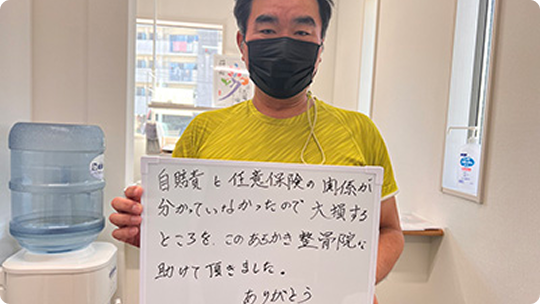 自賠責と任意保険の関係が
分かっていなかったので大損する
ところを、このあらかき整骨院に
助けて頂きました。
ありがとう